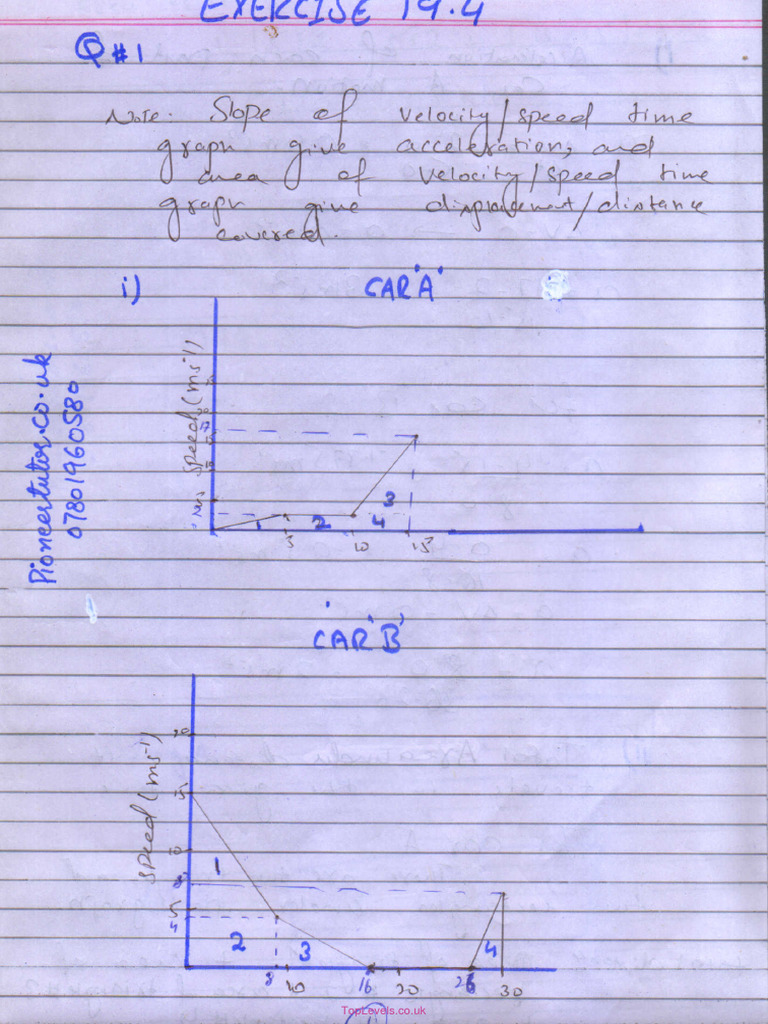 EXERCISE 19.4
Q #1
Note: Slope of velocity/speed time
graph give acceleration, and
area of velocity/speed time
graph give displacement/distance
covered.
i) CAR 'A'
Speed (ms⁻¹)
1 2 3 4
5 10 15
Pioneertutor.co.uk
07801960580
CAR 'B'
Speed (ms⁻¹)
20
15
10
8
5
4
1
2 3 4
8 10 16 20 26 30
TopLevels.co.uk
(1)